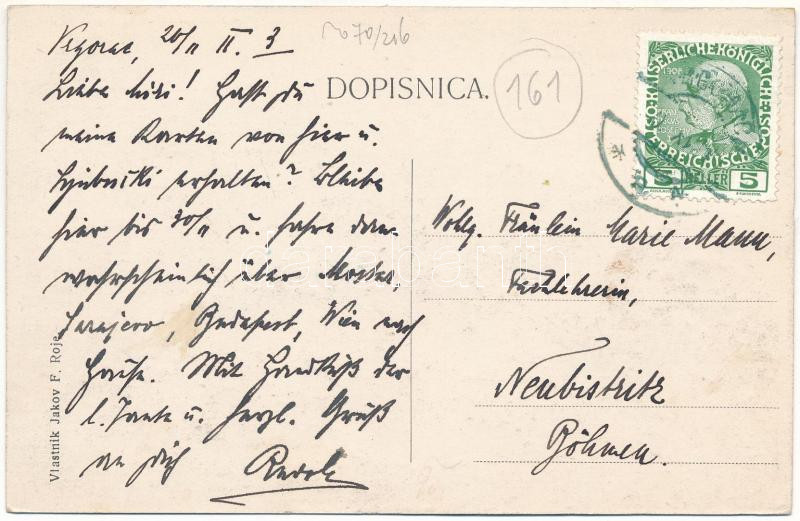 Vrgorac, 20/II
Liebe Mizi! Hast du
meine Karten von hier u.
Ljubuški erhalten? Bleibe
hier bis 30/II u. fahre dann
wahrscheinlich über Mostar,
Sarajevo, Budapest, Wien nach
Hause. Mit Handkuß der
l. Tante u. herzl. Gruß
an dich Rudolf
70/216
DOPISNICA.
161
KAISERLICHE KÖNIGLICHE
ÖSTERREICHISCHE
1908
5 HELLER 5
Wohlg. Fräulein Marie Mann,
Fachlehrerin,
Neubistritz
Böhmen.
Vlastnik Jakov F. Roje